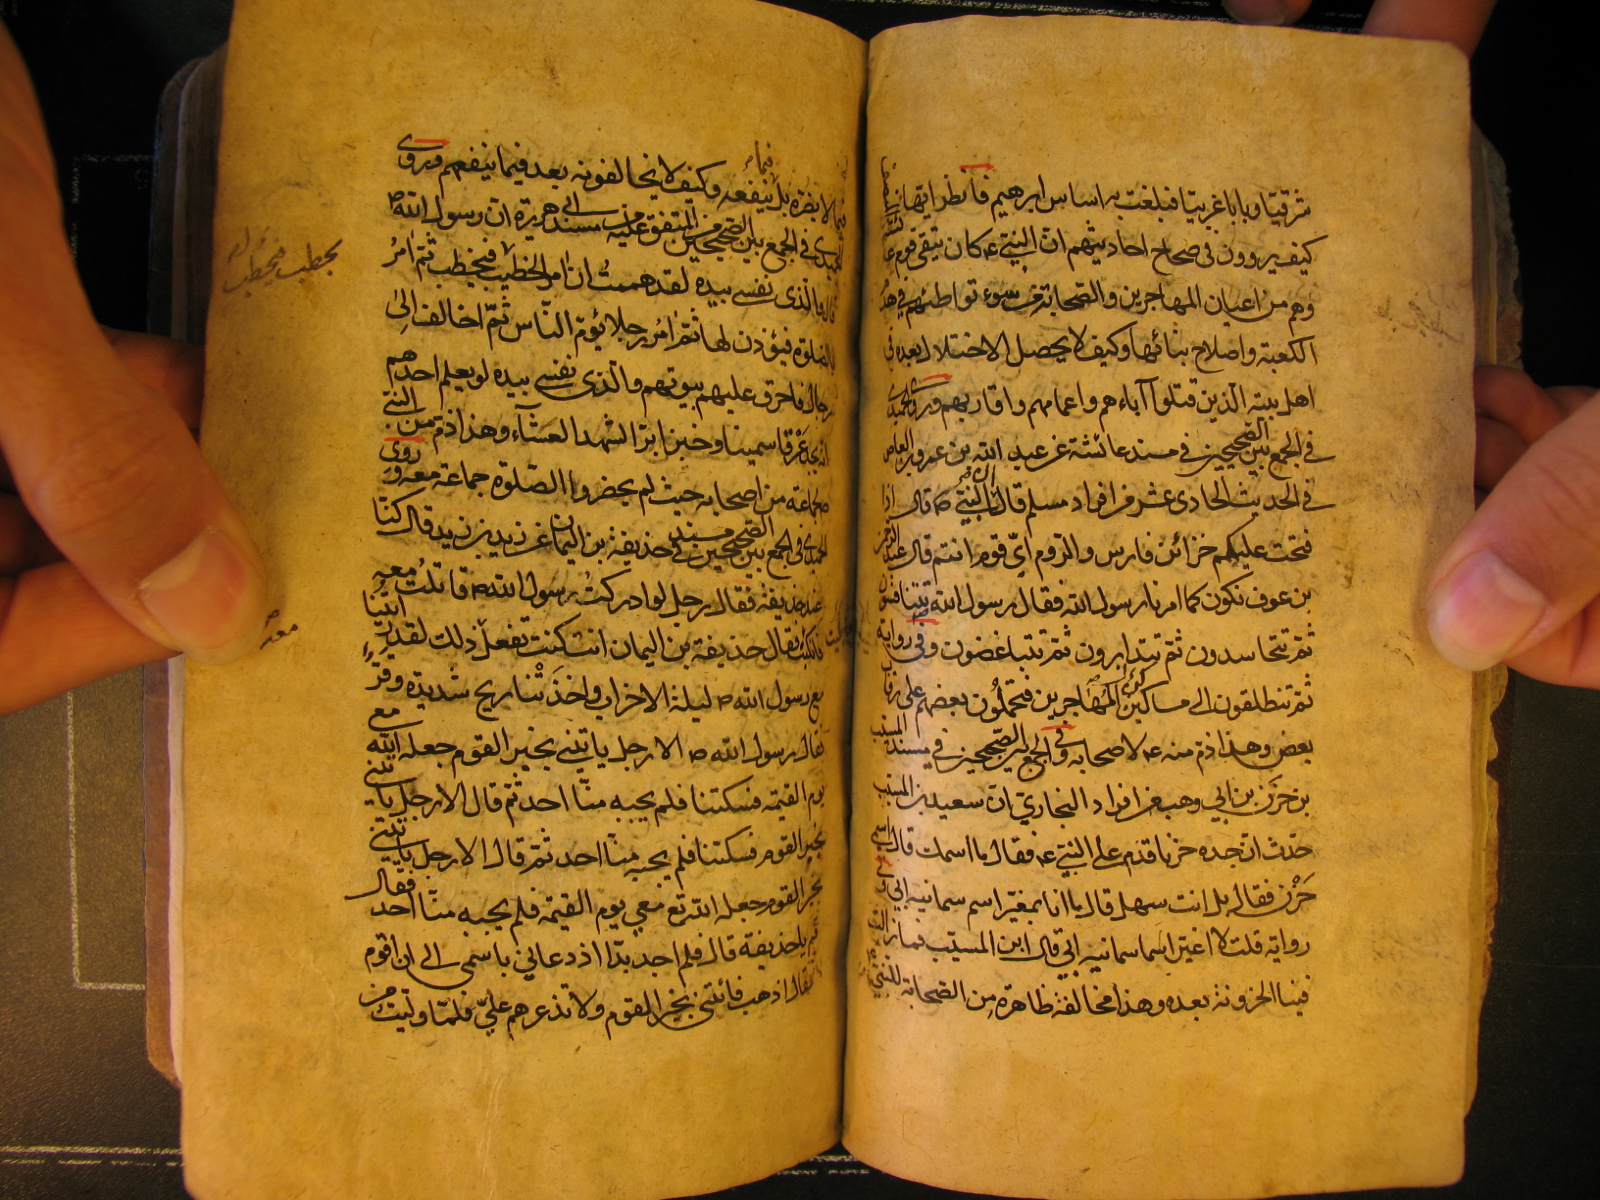 شرقيّا وبابا غربيّا فبلغت به اساس ابرهيم فانظر ايها
كيف يروون فى صحاح احاديثهم انّ النبيّ ع كان يتقى قوم
وهم من اعيان المهاجرين والصّحابة من سوء تواطئهم فى هد
الكعبة واصلاح بنائها وكيف لا يحصل الاختلال بعده فى
اهل بيته الّذين قتلوا آباءهم واعمامهم واقاربهم وروى الحميدى
فى الجمع بين الصّحيحين فى مسند عائشة عن عبد الله بن عمرو بن العاص
فى الحديث الحادى عشر من افراد مسلم قال انّ النبيّ ص قال اذا
فتحت عليكم خزائن فارس والرّوم اىّ قوم انتم قال عبد الرحمن
بن عوف نكون كما امرنا رسول الله فقال رسول الله ص تتنافسون
ثمّ تتحاسدون ثمّ تتدابرون ثمّ تتباغضون وفى رواية
ثمّ تنطلقون الى مساكين المهاجرين فتحملون بعضهم على رقاب
بعض وهذا ذمّ منه ع لاصحابه وفى الجمع بين الصّحيحين فى مسند المسيّب
بن حزن بن ابي وهب من افراد البخاريّ انّ سعيد بن المسيّب
حدّث انّ جده حزنا قدم على النبيّ ع فقال ما اسمك قال اسمى
حَزْن فقال بل انت سهل قال ما انا بمغيّر اسم سمانيه ابي وفى
رواية قلت لا اغيّر اسما سمانيه ابي قال ابن المسيّب فما زالت
فينا الحزونة بعده وهذا مخالفة ظاهرة من الصّحابة للنبيّ
فيما لا يضرّه بل ينفعه وكيف لا يخالفونه بعد فيما ينفعهم وروى
الحميدى فى الجمع بين الصّحيحين من المتفق عليه من مسند ابى هريرة انّ رسول الله ص
قال والّذى نفسى بيده لقد هممت ان امر الحطب فيحطب ثمّ امر
بالصّلوة فيؤذن لها ثمّ امر رجلا يؤمّ النّاس ثمّ اخالف الى
رجال فاحرق عليهم بيوتهم والّذى نفسى بيده لو يعلم احدهم
انه يجد عرقا سمينا وخبز ابرّا لشهد العشآء وهذا ذمّ من النبيّ
لجماعة من اصحابه حيث لم يحضروا الصّلوة جماعة معه وروى
الحميدى فى الجمع بين الصّحيحين فى مسند حذيفة بن اليمان عن زيد بن زيد قال كنّا
عند حذيفة فقال رجل لو ادركت رسول الله ص قاتلت معه
فقال حذيفة بن اليمان انت كنت تفعل ذلك لقد رايتنا
مع رسول الله ص ليلة الاحزاب واخذتنا ريح شديدة وقرّ
فقال رسول الله ص الا رجل ياتنى بخبر القوم جعله الله مع
يوم القيمة فسكتنا فلم يجبه منّا احد ثمّ قال الا رجل ياتنى
بخبر القوم فسكتنا فلم يجبه منّا احد ثمّ قال الا رجل ياتينى
بخبر القوم جعله الله تع معي يوم القيمة فلم يجبه منّا احد فقال
قم يا حذيفة قال فلم اجد بدّا اذ دعاني باسمى الى ان اقوم
فقال اذهب فائتنى بخبر القوم ولا تذعرهم عليّ فلمّا ولّيت من